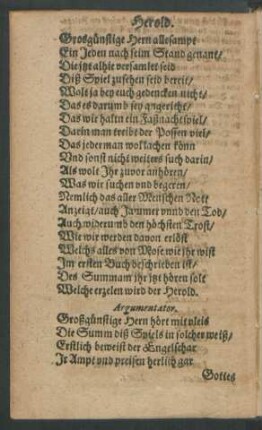 Herold.
Grosgünstige Hern allesampt
Ein Jeden nach seim Stand genant/
Die jtzt alhie versamlet seid
Diß Spiel zusehen seid bereit/
Wolt ja bey euch gedencken nicht/
Das es darumb sey angericht/
Das wie haltn ein Faßnacht spiel/
Darin man treibt der Possen viel/
Das jederman wol lachen könn
Vnd sonst nicht weiters such darin/
Als wolt Jhr zuvor anhören/
Was wir suchen vnd begeren/
Nemlich das aller Menschen Nott
Anzeigt/ auch Jammer vnnd den Tod/
Auch widerumb den höchsten Trost/
Wie wir werden davon erlöst
Welchs alles von Mose wie jhr wist
Im ersten Buch beschrieben ist/
Des Summam jhr jtzt hören solt
Welche erzelen wird der Herold.
Argumentator.
Großgünstige Hern hört mit vleis
Die Summ diß Spiels in solcher weiß/
Erstlich beweist der Engelschar
Jr Ampt vnd preisen herlich gar
Gottes